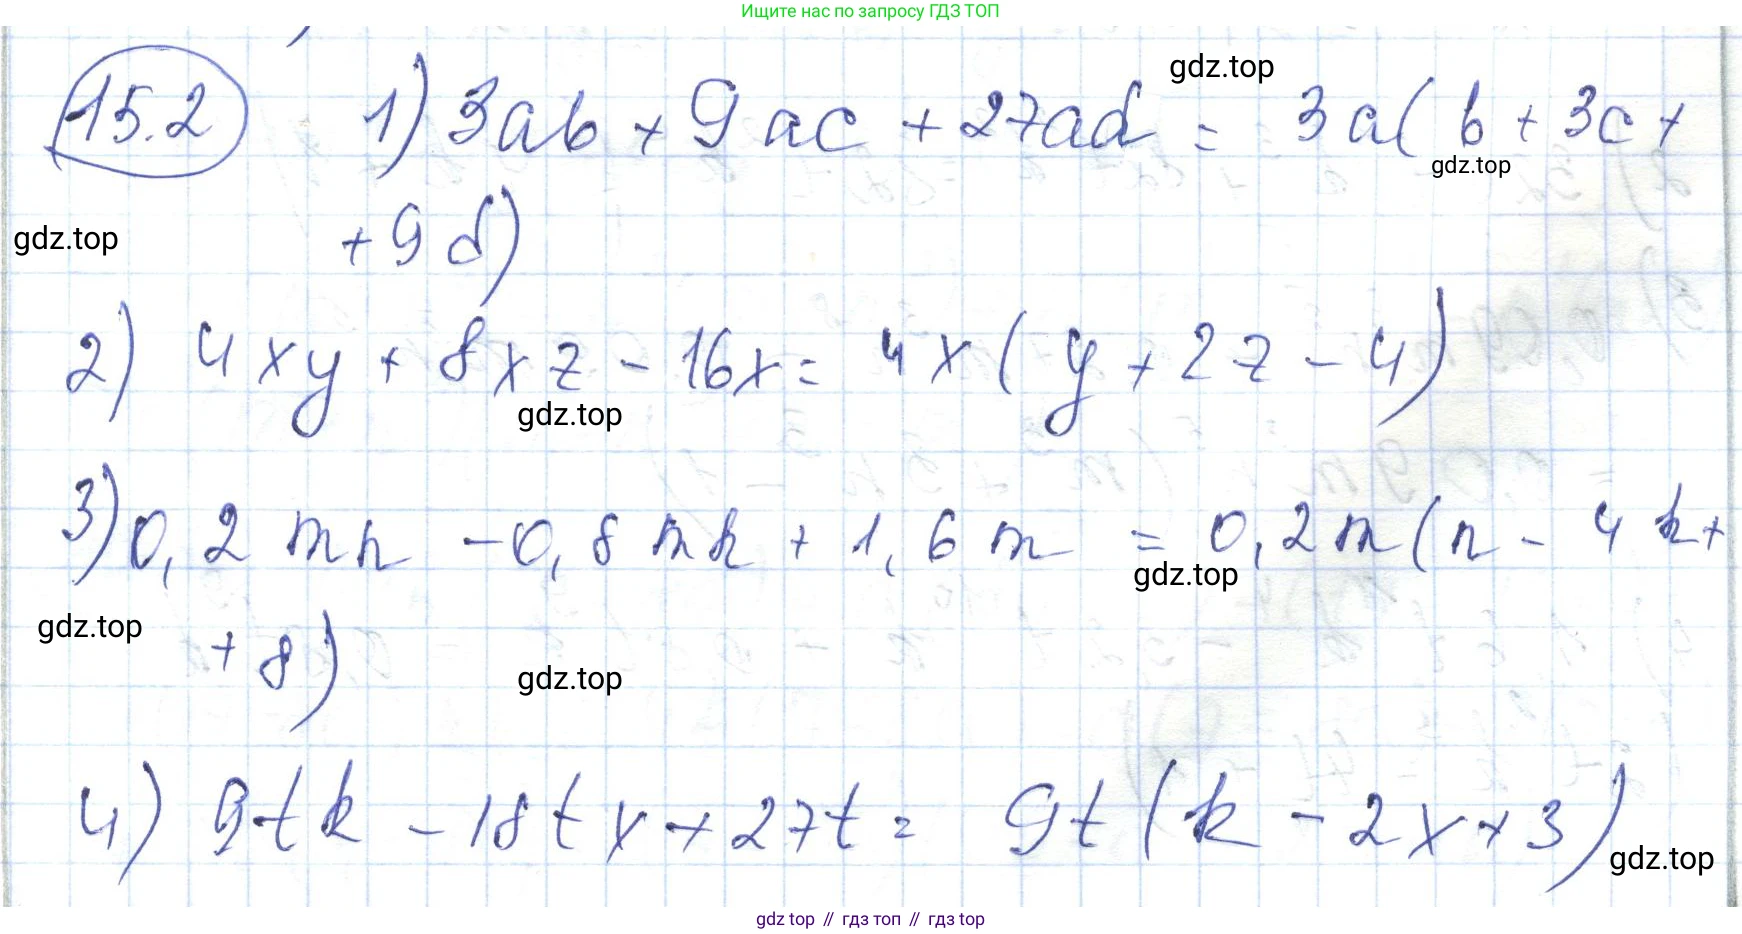 Ищите нас по запросу ГДЗ ТОП
gdz.top
15.2 1) 3ab + 9ac + 27ad = 3a(b + 3c +
gdz.top
gdz.top
+ 9d)
2) 4xy + 8xz - 16x = 4x(y + 2z - 4)
gdz.top
3) 0,2mn - 0,8mk + 1,6m = 0,2m(n - 4k +
gdz.top
gdz.top
+ 8)
gdz.top
4) 9tk - 18tx + 27t = 9t(k - 2x + 3)
gdz.top
gdz top // гдз топ // гдз top